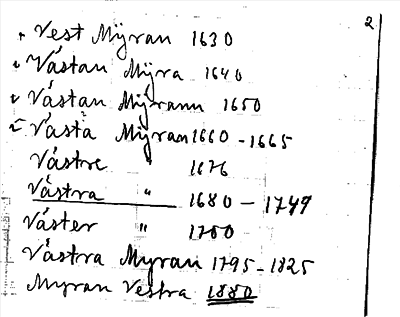 2
Vest Mÿran 1630
Västan Mÿra 1640
Västan Mÿrann 1650
Västa Mÿran 1660 - 1665
Västre " 1676
Västra " 1680 - 1749
Väster " 1780
Västra Myran 1795 - 1825
Myran Vestra 1880